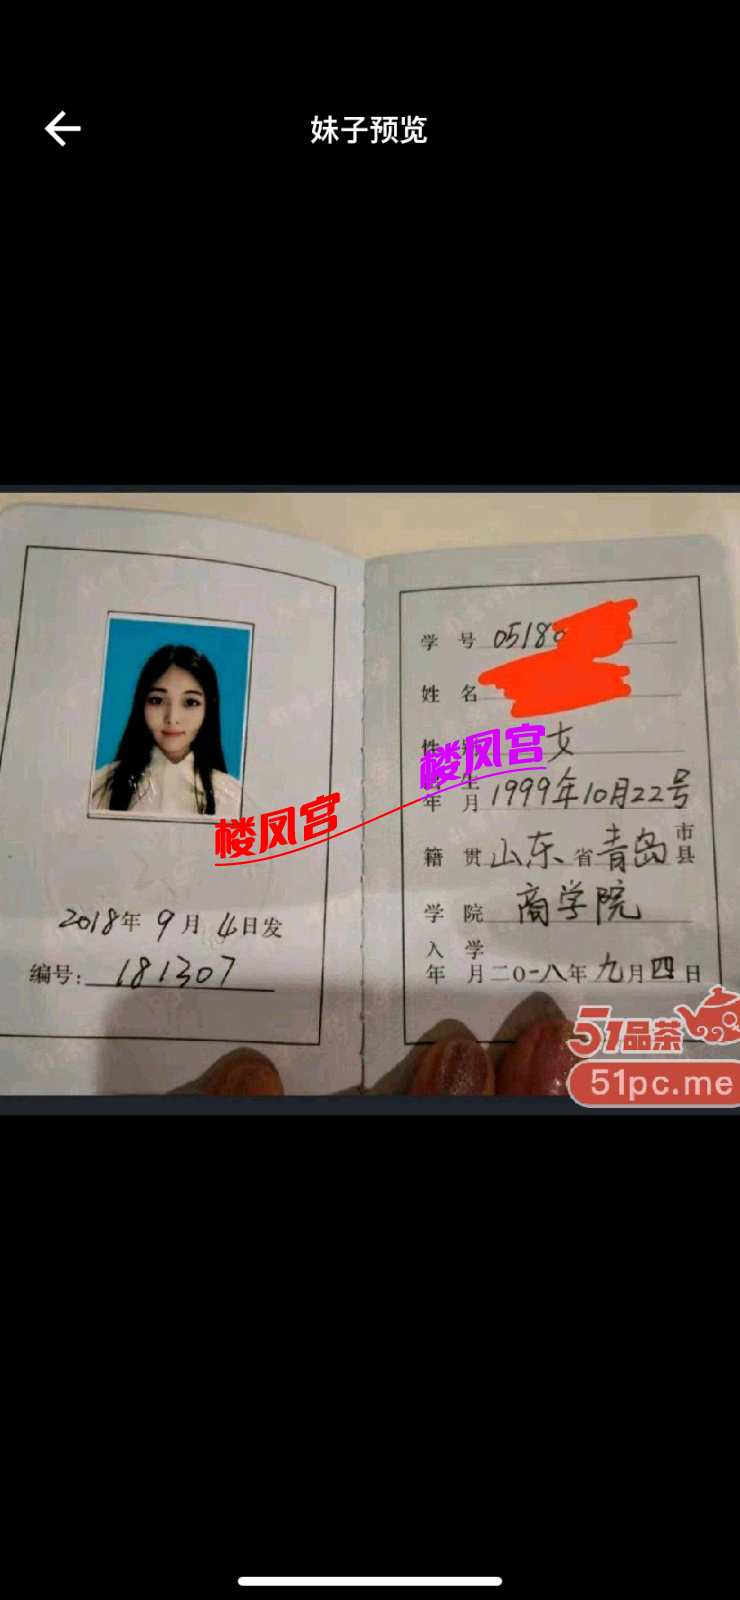 妹子预览
2018年9月4日发
编号: 181307
学号 0518
姓名
楼凤宫
楼凤宫
女
年月 1999年10月22号
籍贯 山东省青岛市县
学院 商学院
入学
年月 二0一八年九月四日
51品茶
51pc.me